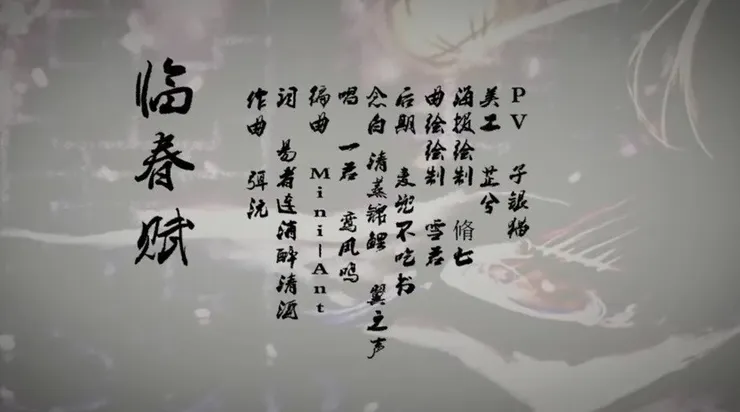 临春赋
作曲 弭沅
词 易者连消醉清酒
编曲 Mini-Ant
唱 一君 鸾凤鸣
念白 清蒸锦鲤 翼之声
后期 麦兜不吃书
曲绘绘制 雪君
海报绘制 脩七
美工 芷兮
PV 子银猫